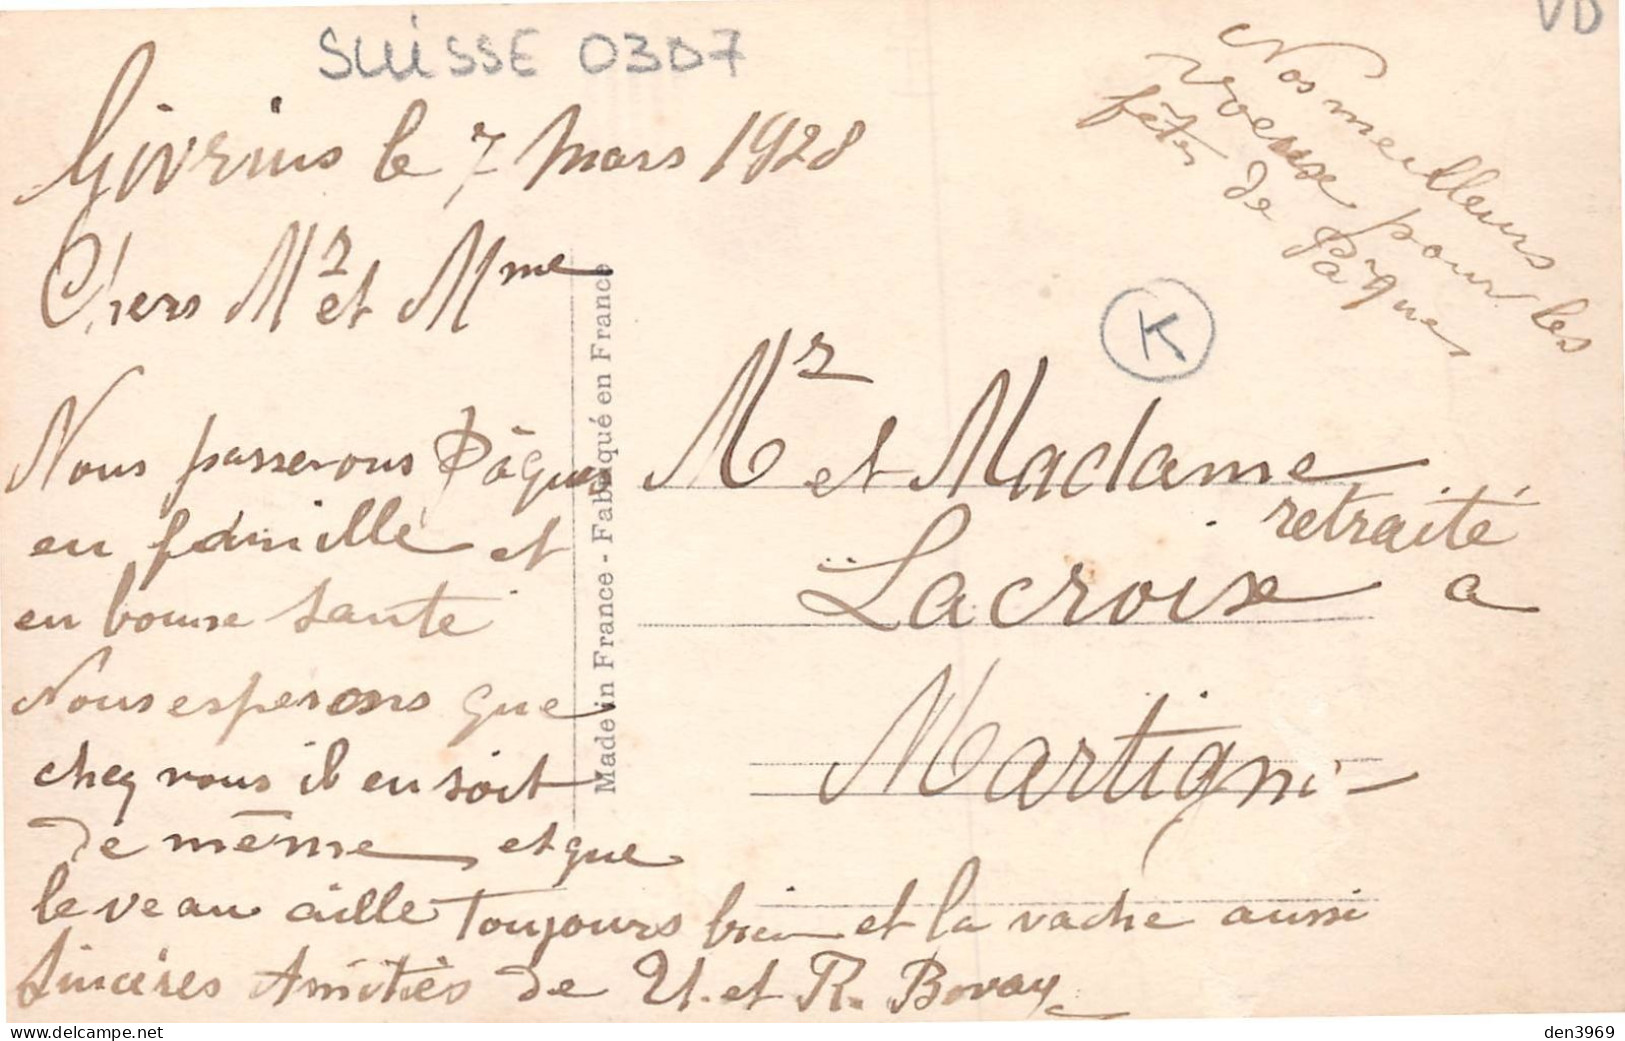 SUISSE 0307
VD
Givrins le 7 Mars 1928
Chers Mr et Mme
Nous passerons Pâques
en famille et
en bonne santé
Nous esperons que
chez vous il en soit
de même et que
le veau aille toujours bien et la vache aussi
Sincères Amitiés de U. et R. Bovay
Nos meilleurs
voeux pour les
fêtes de Pâques
K
Made in France - Fabriqué en France
Mr et Madame
Lacroix retraité a
Martigni
den3969